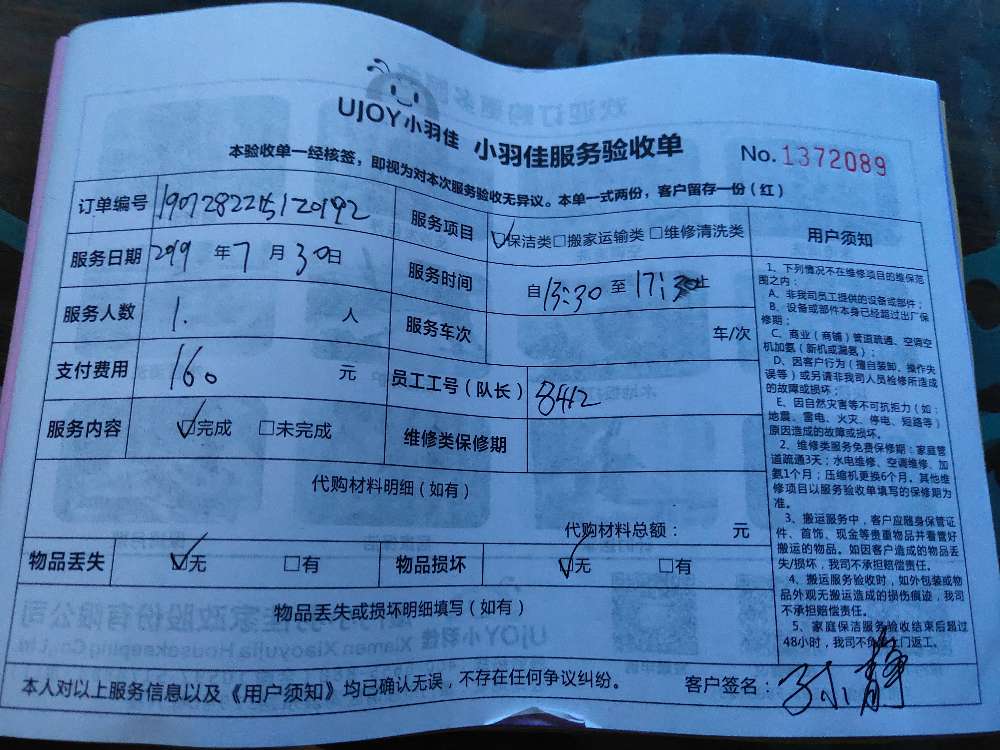 UJOY小羽佳 小羽佳服务验收单 No.1372089
本验收单一经核签，即视为对本次服务验收无异议。本单一式两份，客户留存一份（红）
订单编号 服务项目 保洁类□搬家运输类□维修清洗类
服务日期 年7月30日 服务时间 自13:30至17:30止
服务人数 1. 人 服务车次 车/次
支付费用 160 元 员工工号（队长） 8412
服务内容 完成 □未完成 维修类保修期
代购材料明细（如有）
代购材料总额： 元
物品丢失 无 □有 物品损坏 无 □有
物品丢失或损坏明细填写（如有）
用户须知
1、下列情况不在维修项目的维保范
围之内：
A、非我司员工提供的设备或部件；
B、设备或部件本身已经超过出厂保
修期；
C、商业（商铺）管道疏通、空调空
机加氨（新机或漏氨）；
D、因客户行为（擅自装卸、操作失
误等）或另请非我司人员检修所造成
的故障或损坏；
E、因自然灾害等不可抗拒力（如：
地震、雷电、火灾、停电、短路等）
原因造成的故障或损坏。
2、维修类服务免费保修期：家庭管
道疏通3天；水电维修、空调维修、加
氨1个月；压缩机更换6个月。其他维
修项目以服务验收单填写的保修期为
准。
3、搬运服务中，客户应随身保管证
件、首饰、现金等贵重物品并看管好
搬运的物品。如因客户造成的物品丢
失/损坏，我司不承担赔偿责任。
4、搬运服务验收时，如外包装或物
品外观无搬运造成的损伤痕迹，我司
不承担赔偿责任。
5、家庭保洁服务验收结束后超过
48小时，我司不负责上门返工。
本人对以上服务信息以及《用户须知》均已确认无误，不存在任何争议纠纷。 客户签名：孙小静